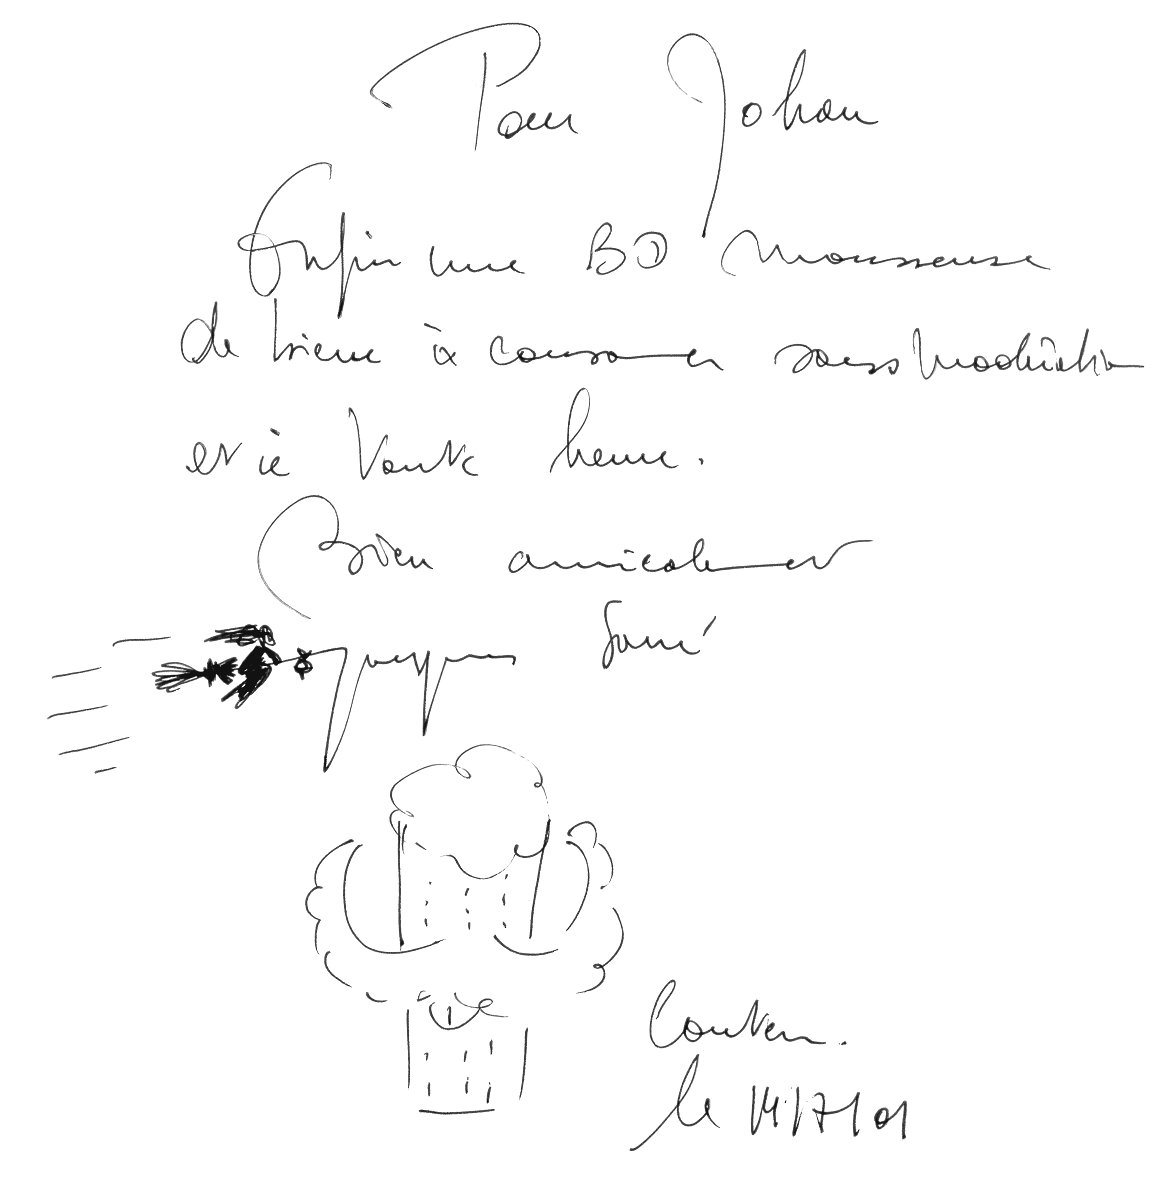 Pour Johan
Enfin une BD mousseuse
de bière à consommer sans modération
et à toute heure.
Bien amicalement
Jacques
le 14/7/01